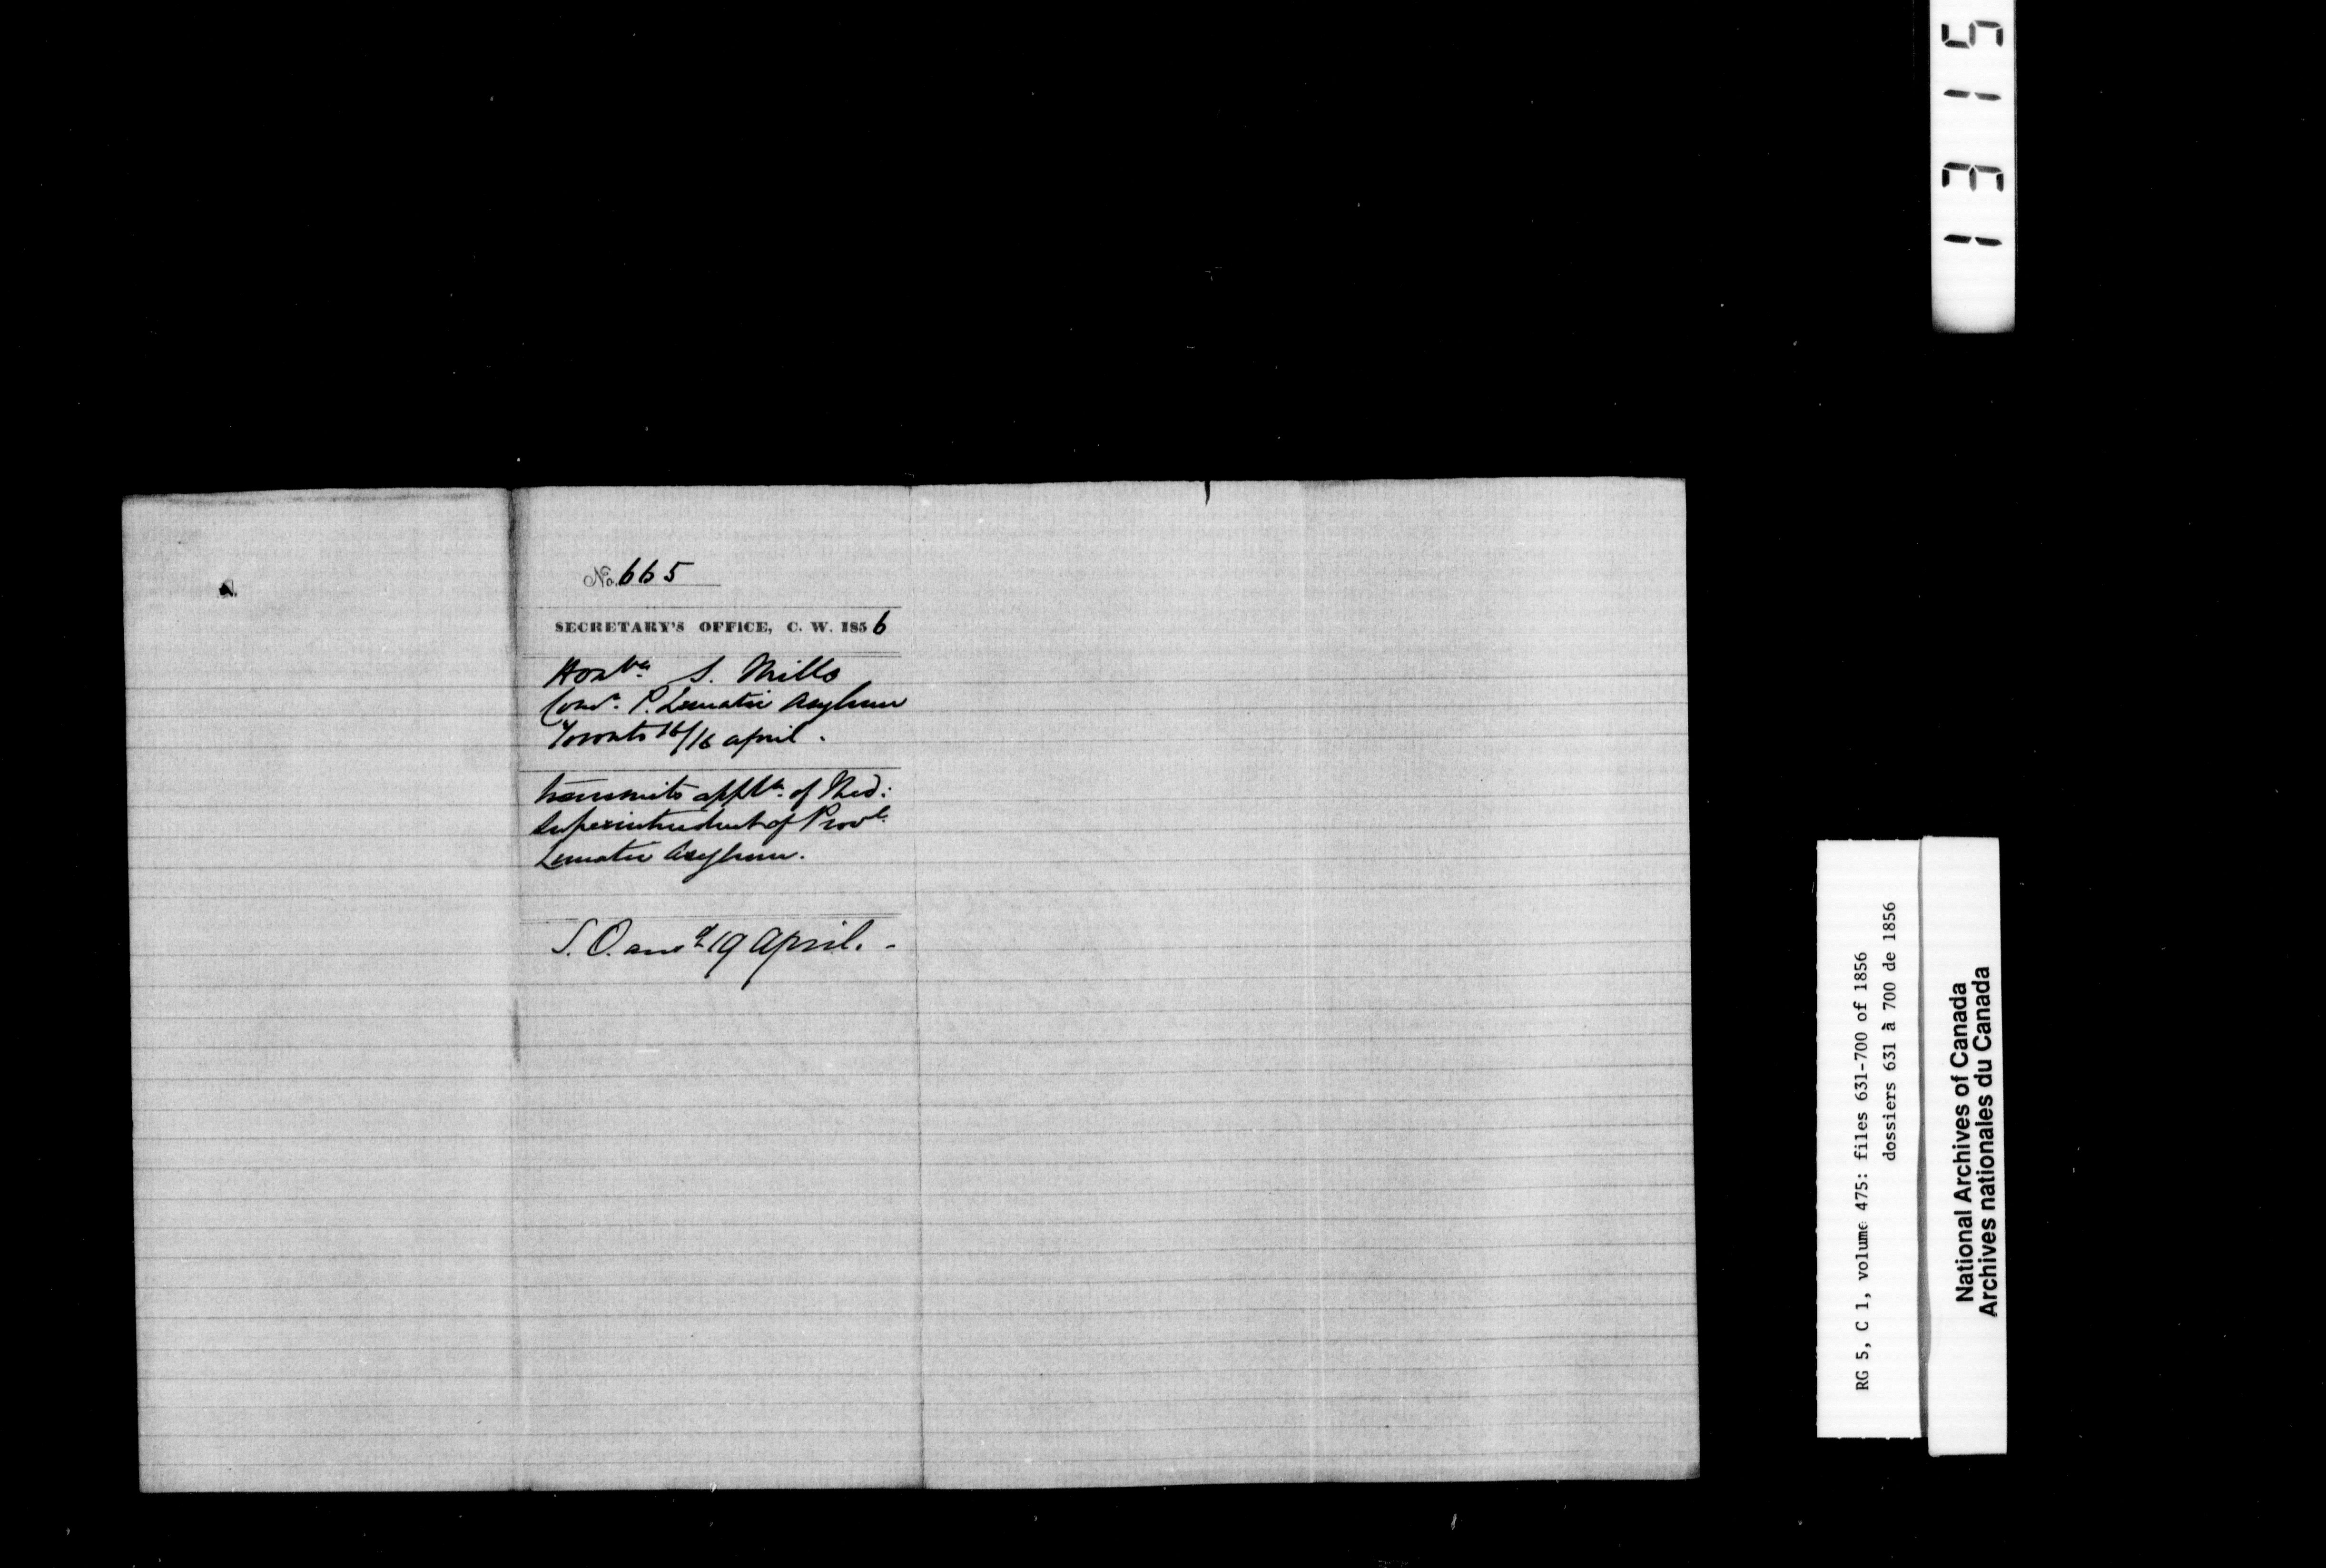 No. 665
SECRETARY'S OFFICE, C. W. 1856
Honble S. Mills
Comr. P. Lunatic Asylum
Toronto 16/16 april.
transmits appln. of Med:
Superintendent of Provl.
Lunatic Asylum.
S. O. ansd 19 April. -
1315
RG 5, C 1, volume 475: files 631-700 of 1856
dossiers 631 à 700 de 1856
National Archives of Canada
Archives nationales du Canada